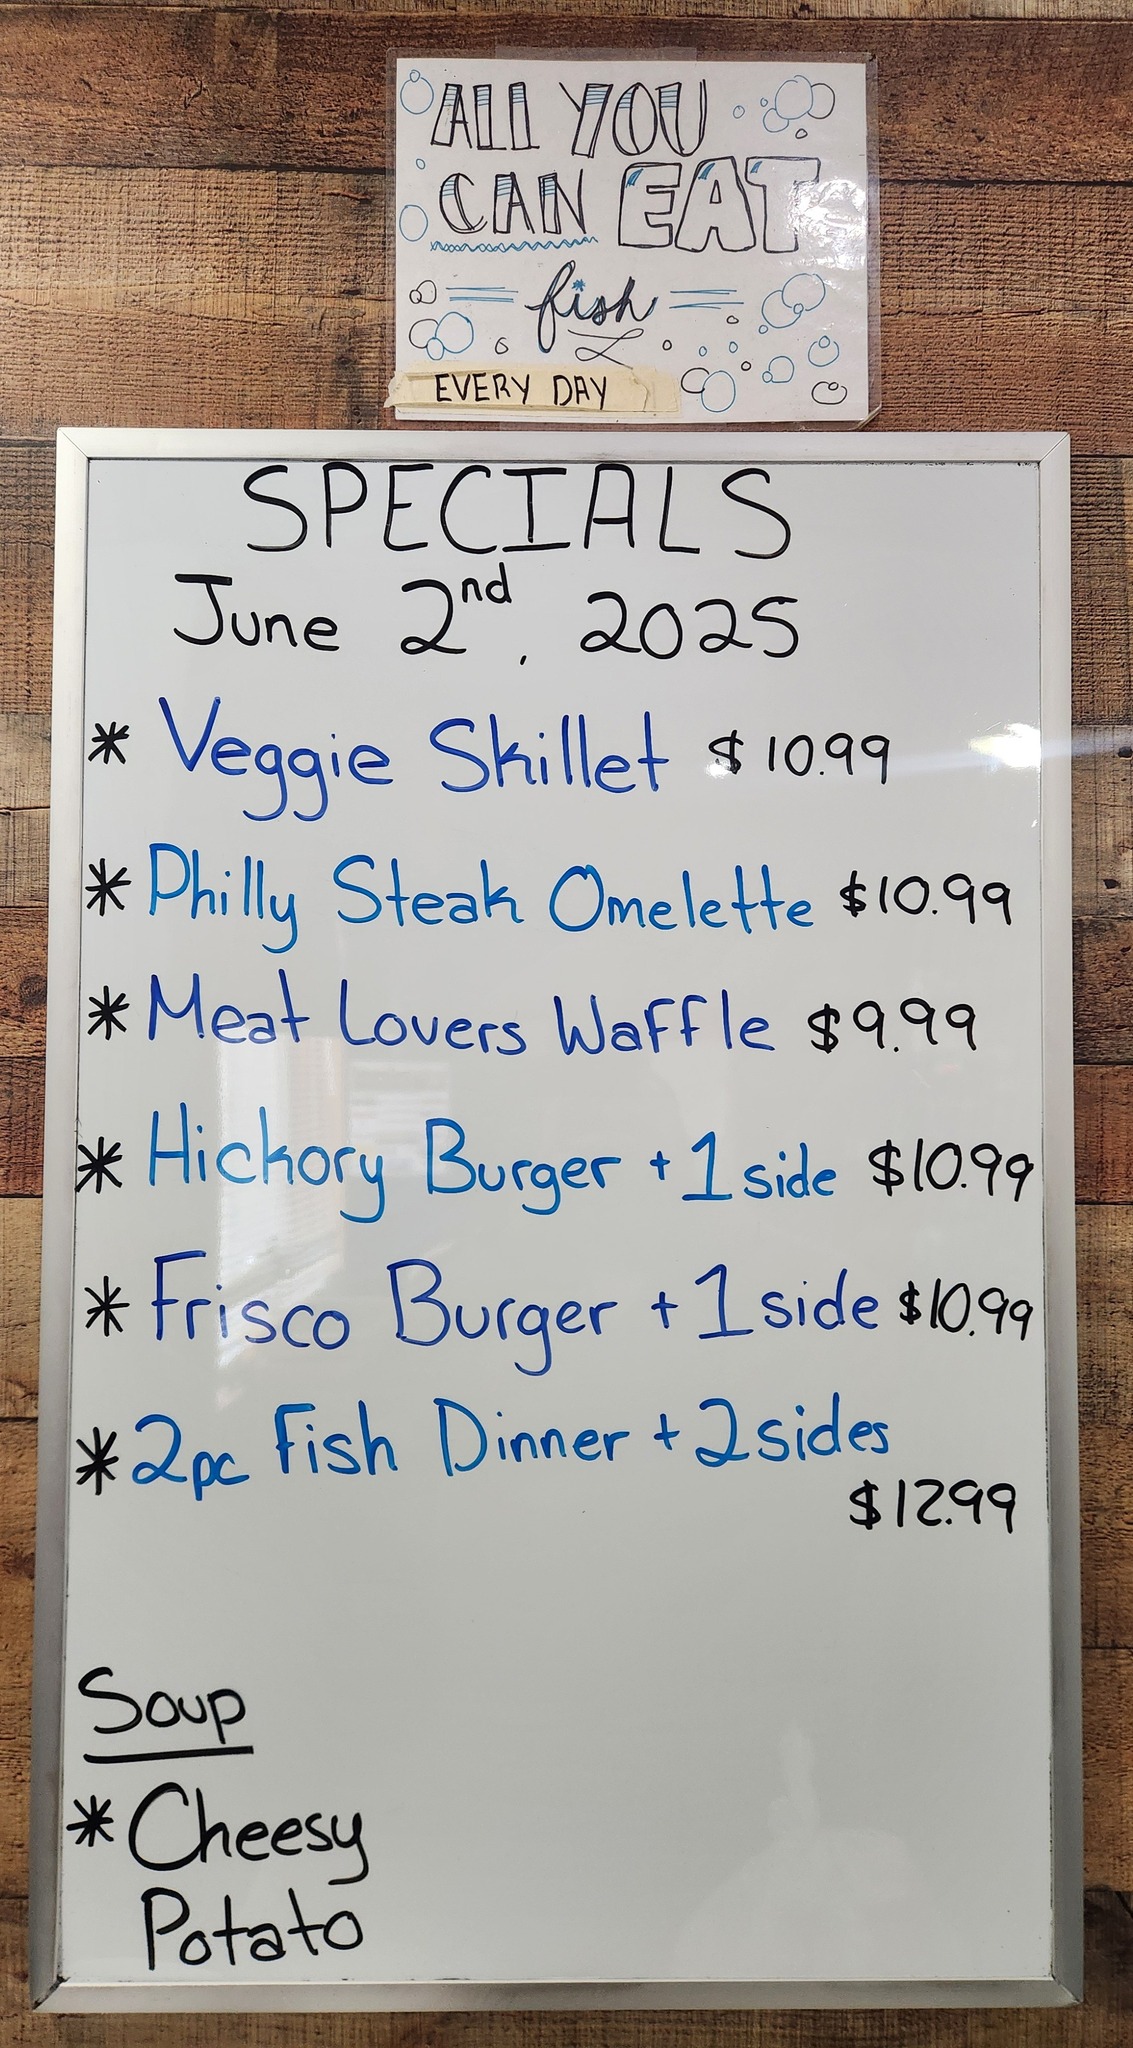 ALL YOU
CAN EAT
fish
EVERY DAY
SPECIALS
June 2nd, 2025
* Veggie Skillet $10.99
* Philly Steak Omelette $10.99
* Meat Lovers Waffle $9.99
* Hickory Burger + 1 side $10.99
* Frisco Burger + 1 side $10.99
* 2pc Fish Dinner + 2 sides
$12.99
Soup
* Cheesy
Potato